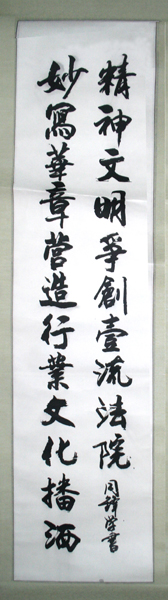 精神文明爭創壹流法院
妙寫華章营造行業文化播洒